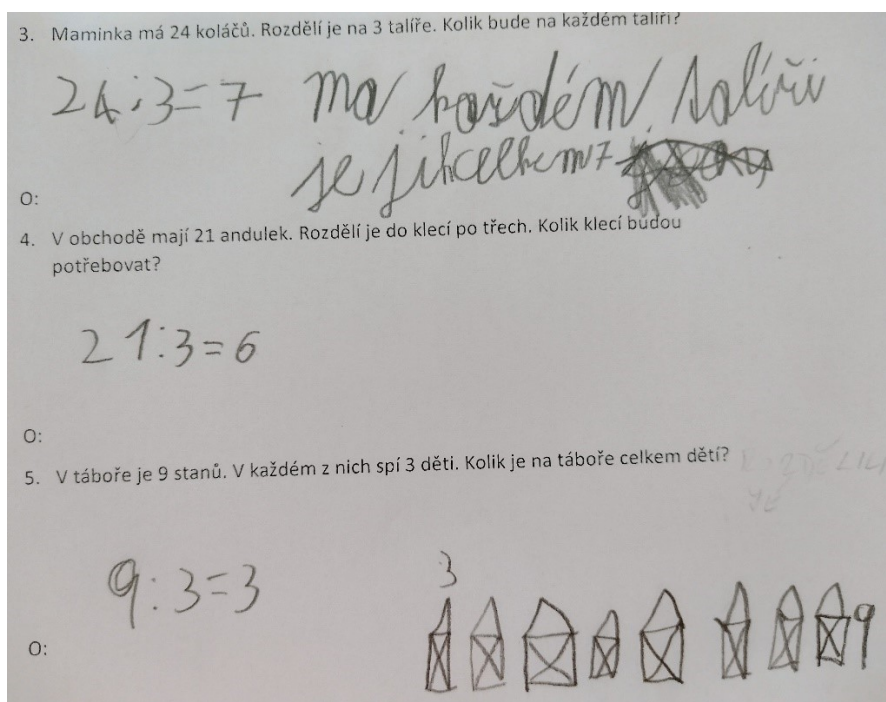 3. Maminka má 24 koláčů. Rozdělí je na 3 talíře. Kolik bude na každém talíři?
24:3=7 ma každém talíři
je jihcelkem 7
O:
4. V obchodě mají 21 andulek. Rozdělí je do klecí po třech. Kolik klecí budou
potřebovat?
21:3=6
O:
5. V táboře je 9 stanů. V každém z nich spí 3 děti. Kolik je na táboře celkem dětí?
9:3=3
3
9
O: